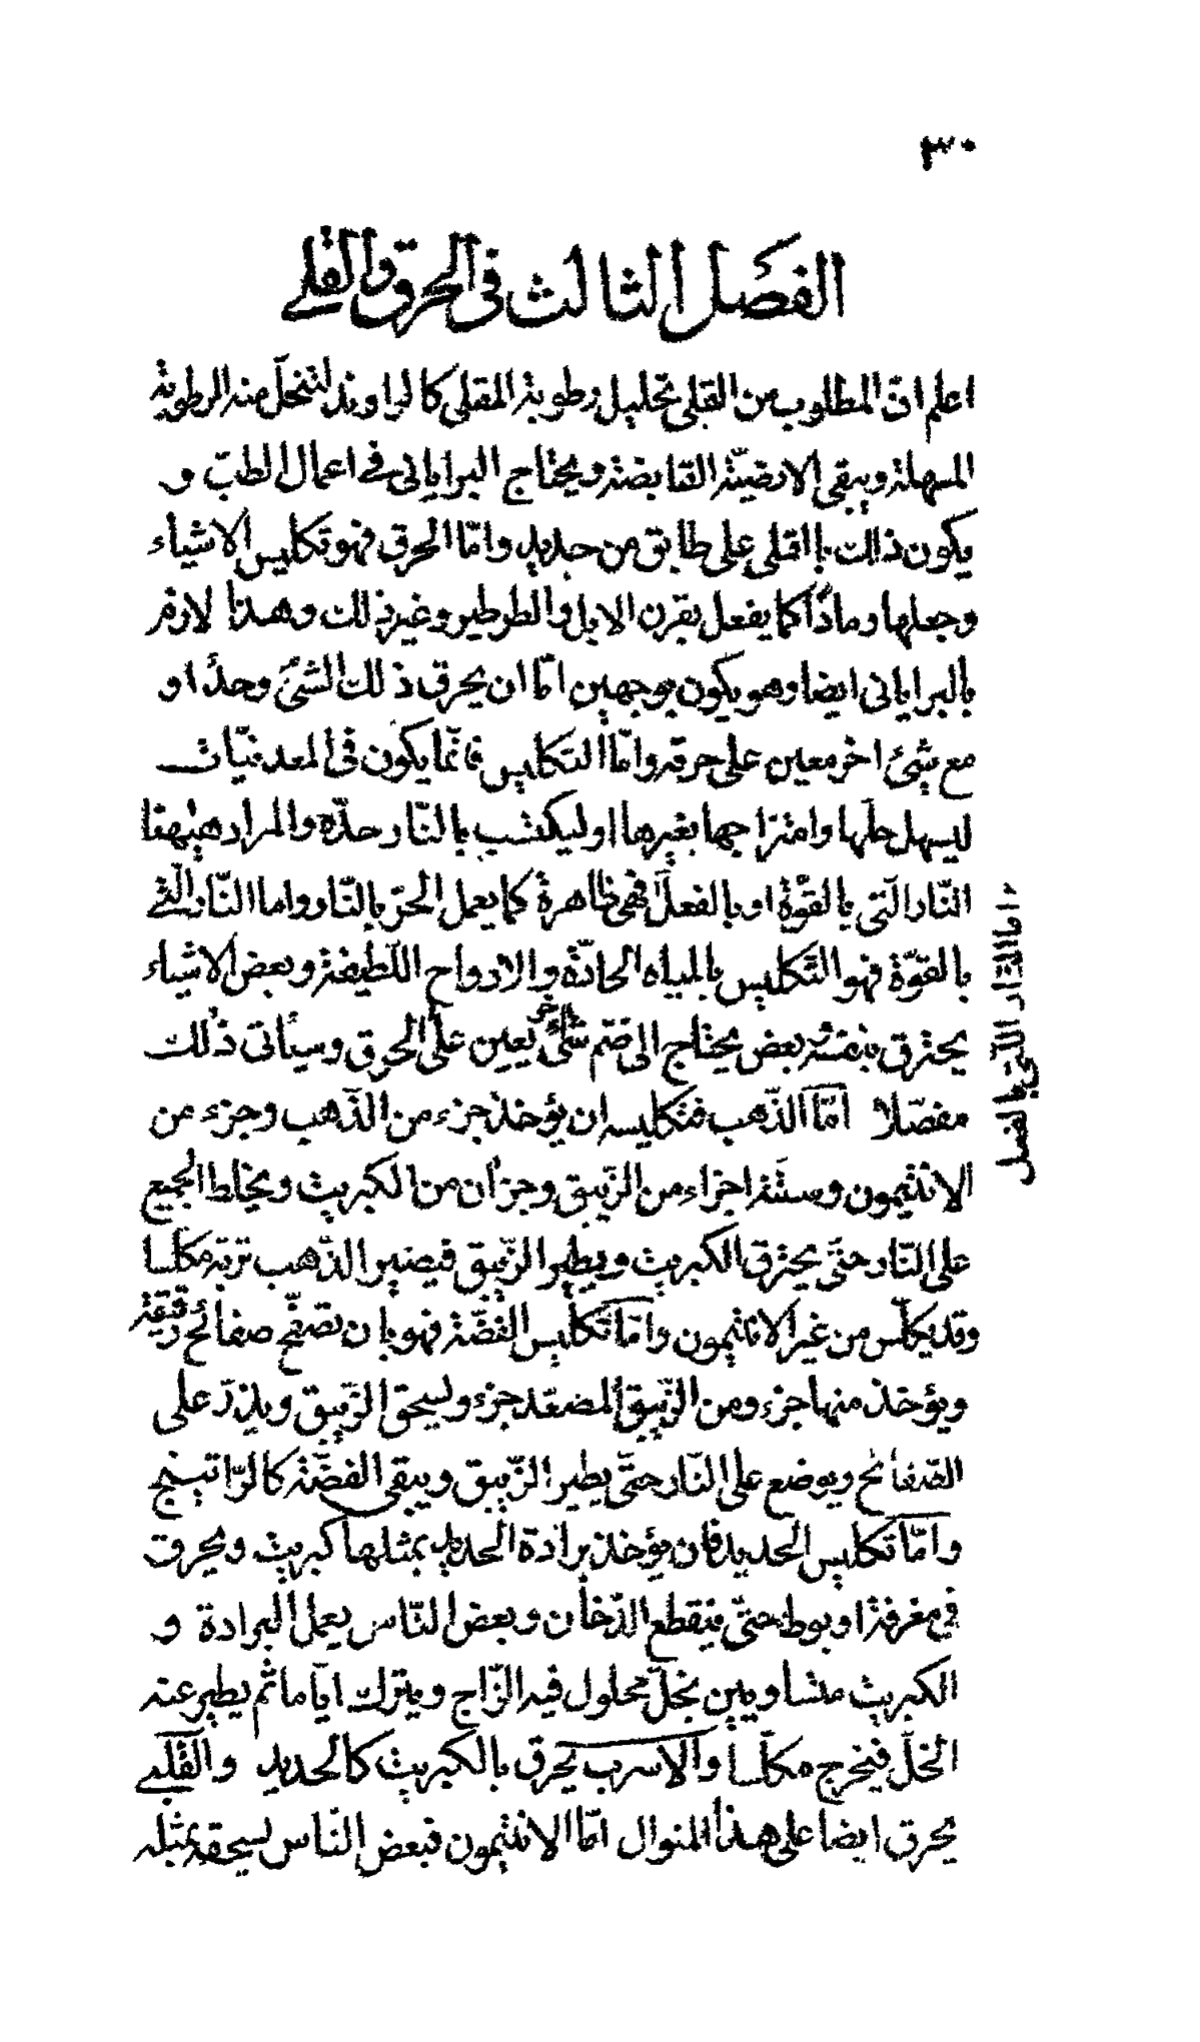 ٣٠
الفصل الثالث فى الحرق والقلے
اعلم انّ المطلوب من القلى تحليل رطوبة المقلى كالراوند لتنحلّ منه الرطوبة
المسهلة ويبقى الارضيّة القابضة ويحتاج البراياني فے اعمال الطبّ و
يكون ذالك بااقلى على طابق من حديد وامّا الحرق فهو تكليس الاشياء
وجعلها رمادًا كما يفعل بقرن الايل والطرطير وغير ذالك وهذا لازم
بالبراياني ايضا وهو يكون بوجهين امّا ان يحرق ذلك الشئ وحدا او
مع شئ اخر معين على حرقه وامّا التكليس فانّما يكون فى المعدنيّات
ليسهل حلّها وامتزاجها بغيرها او ليكتسب بالنّار حدّه والمراد هيٰهنا
النّار الّتى بالقوّة او بالفعل فهى ظاهرة كما يعمل الحرّ بالنّار واما النّار الّتے
بالقوّة فهو التّكليس بالمياه الحادّة والارواح اللّطيفة وبعض الاشياء
يحترق بنفسه وبعض يحتاج الى ضمّ شئ اخر يعين على الحرق وسيأتى ذٰلك
مفصّلا امّا الذّهب فتكليسه ان يؤخذ جزء من الذّهب وجزء من
الانتيمون وستّة اجزاء من الزّيبق وجزأن من الكبريت ويخلط الجميع
على النّار حتّى يحترق الكبريت ويطير الزّيبق فيصير الذّهب تربة مكلّسا
وقد يكلّس من غير الانتيمون وامّا تكليس الفضّة فهو بان تصفّح صفائح رقيقة
ويؤخذ منها جزء ومن الزّيبق المصعّد جزء وليسحق الزّيبق ويذرّ على
الصّفائح ويوضع على النّار حتّى يطير الزّيبق ويبقى الفضّة كالرّاتينج
وامّا تكليس الحديد فان يؤخذ برادة الحديد بمثلها كبريت ويحرق
فى مغرفة او بوطه حتّى ينقطع الدّخان وبعض النّاس يعمل البرادة و
الكبريت متساويين بخلّ محلول فيه الزّاج ويترك ايّاما ثم يطير عنه
الخلّ فيخرج مكلّسا والاسرب يحرق بالكبريت كالحديد والقلعے
يحرق ايضا على هذا المنوال امّا الانتيمون فبعض النّاس يسحقه بمثله
اما النّار اللّتى بالفعل